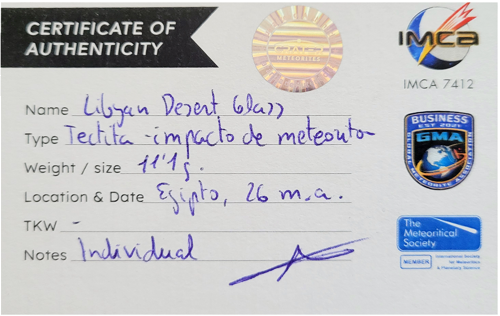 CERTIFICATE OF
AUTHENTICITY
METEORITES
IMCA
IMCA 7412
Name Libyan Desert Glass
Type Tectita - impacto de meteorito
Weight / size 11'1g.
Location & Date Egipto, 26 m.a.
TKW -
Notes Individual
BUSINESS
EST 2021
GMA
GLOBAL METEORITE ASSOCIATION
The
Meteoritical
Society
MEMBER
International Society
for Meteoritics
& Planetary Science